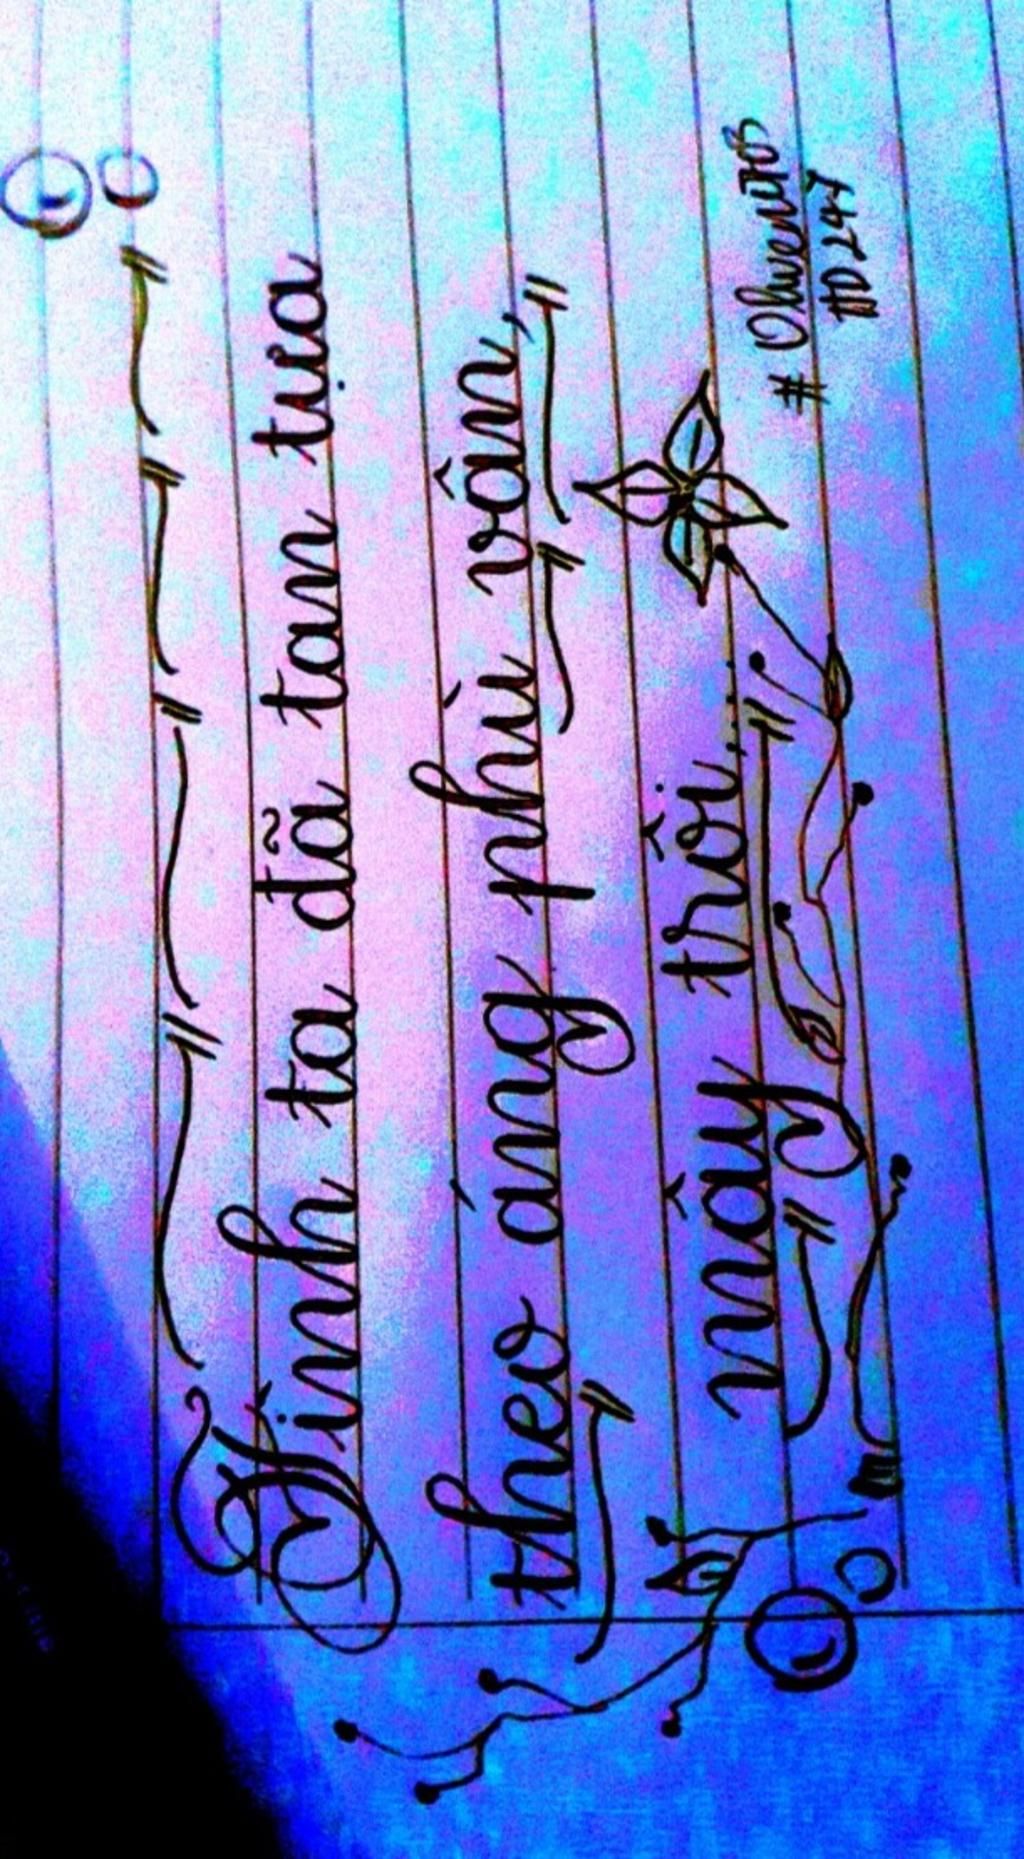 Tình ta đã tan tựa
theo áng phù vân,
mây trôi...
HD247